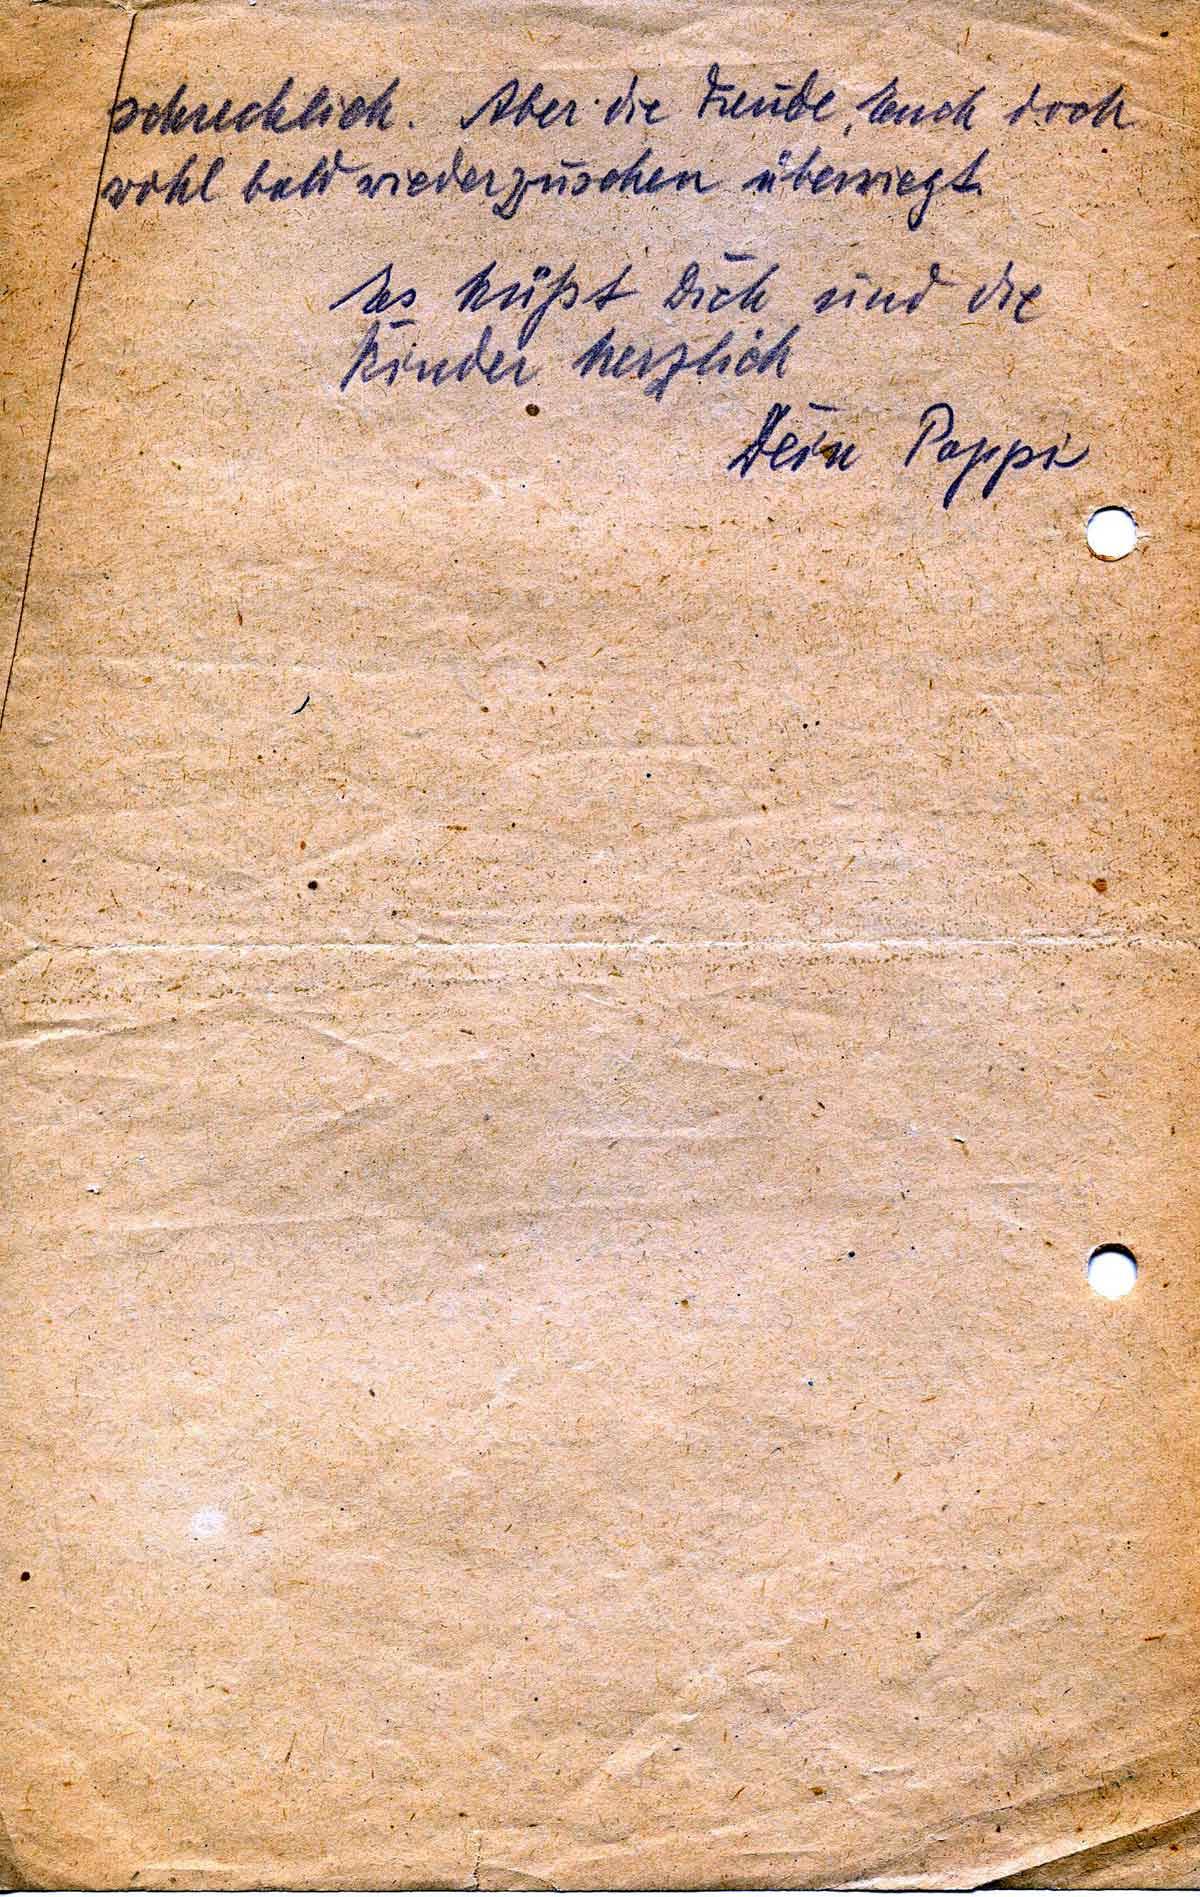 schrecklich. Aber die Freude, Euch doch
wohl bald wiederzusehen überwiegt.
Es küßt Dich und die
Kinder herzlich
Dein Pappi